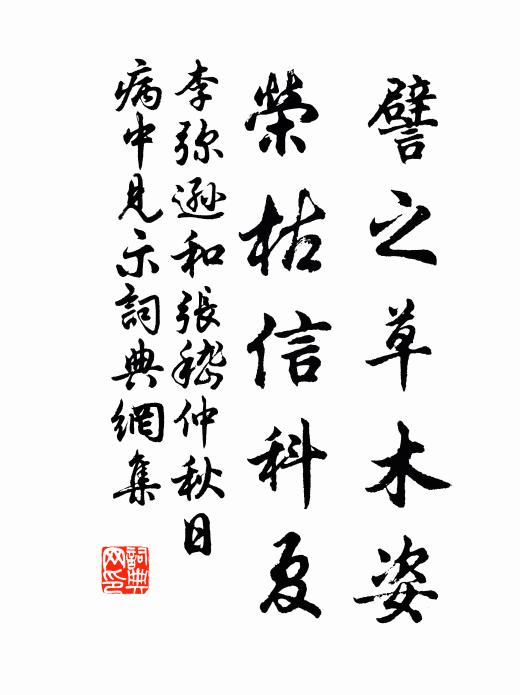 譬之草木姿
榮枯信科夏
李弥遜和張嵇仲秋日
病中見示詞典網集
詞典網印